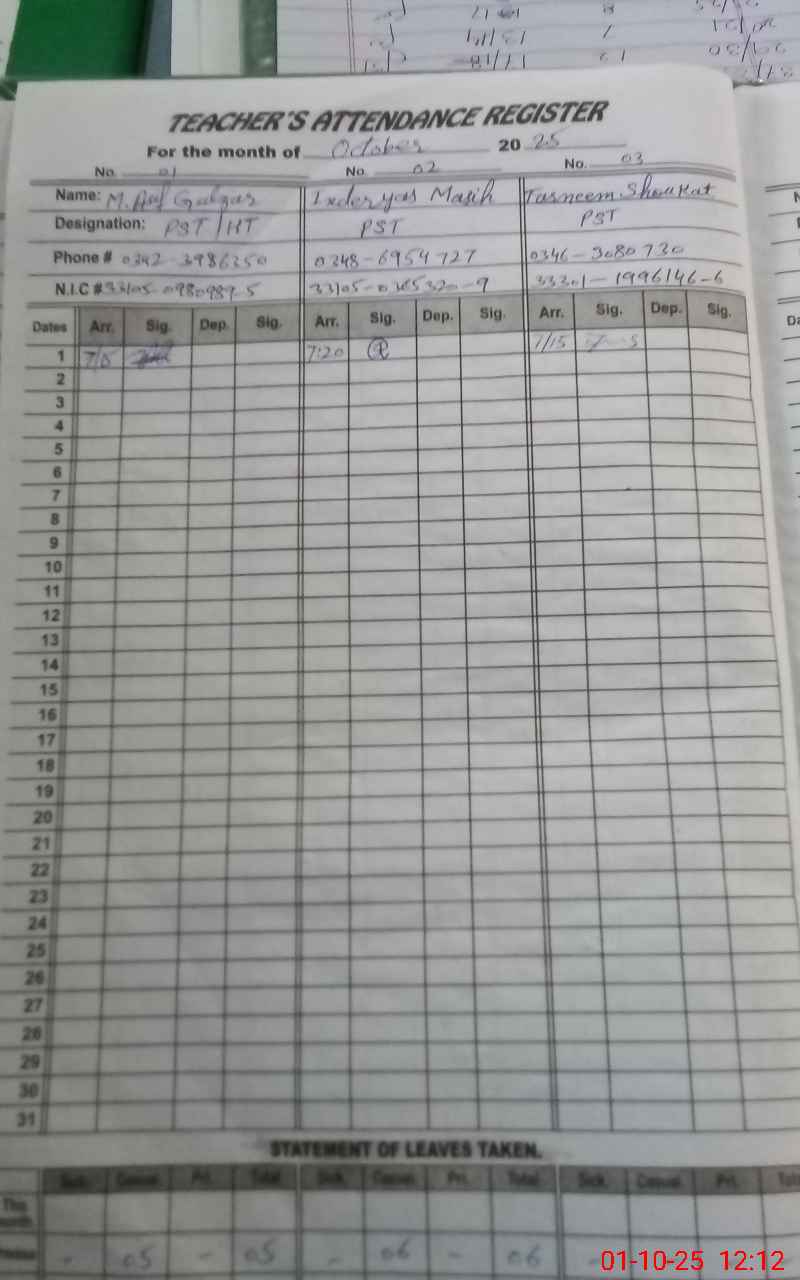 TEACHER'S ATTENDANCE REGISTER
For the month of October 2025
No. 01 No. 02 No. 03
Name: M. Gulzar Inderyas Masih Tasneem Shoukat
Designation: PST/HT PST PST
Phone # 0342-3986350 0348-6954727 0346-3080730
N.I.C # 33105-0980989-5 33105-0365320-9 33301-1996146-6
Dates Arr. Sig. Dep. Sig. Arr. Sig. Dep. Sig. Arr. Sig. Dep. Sig.
1 7/15 7:20 7/15
2
3
4
5
6
7
8
9
10
11
12
13
14
15
16
17
18
19
20
21
22
23
24
25
26
27
28
29
30
31
STATEMENT OF LEAVES TAKEN.
Sick. Casual. Pri. Total. Sick. Casual. Pri. Total. Sick. Casual. Pri.
This month.
- 05 - 05 - 06 - 06
01-10-25 12:12